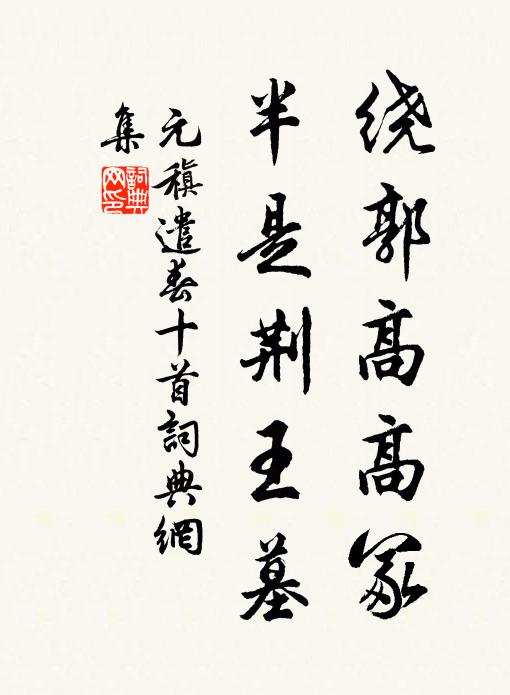 绕郭高高冢
半是荆王墓
元稹遣春十首詞典網
集
詞典
网印